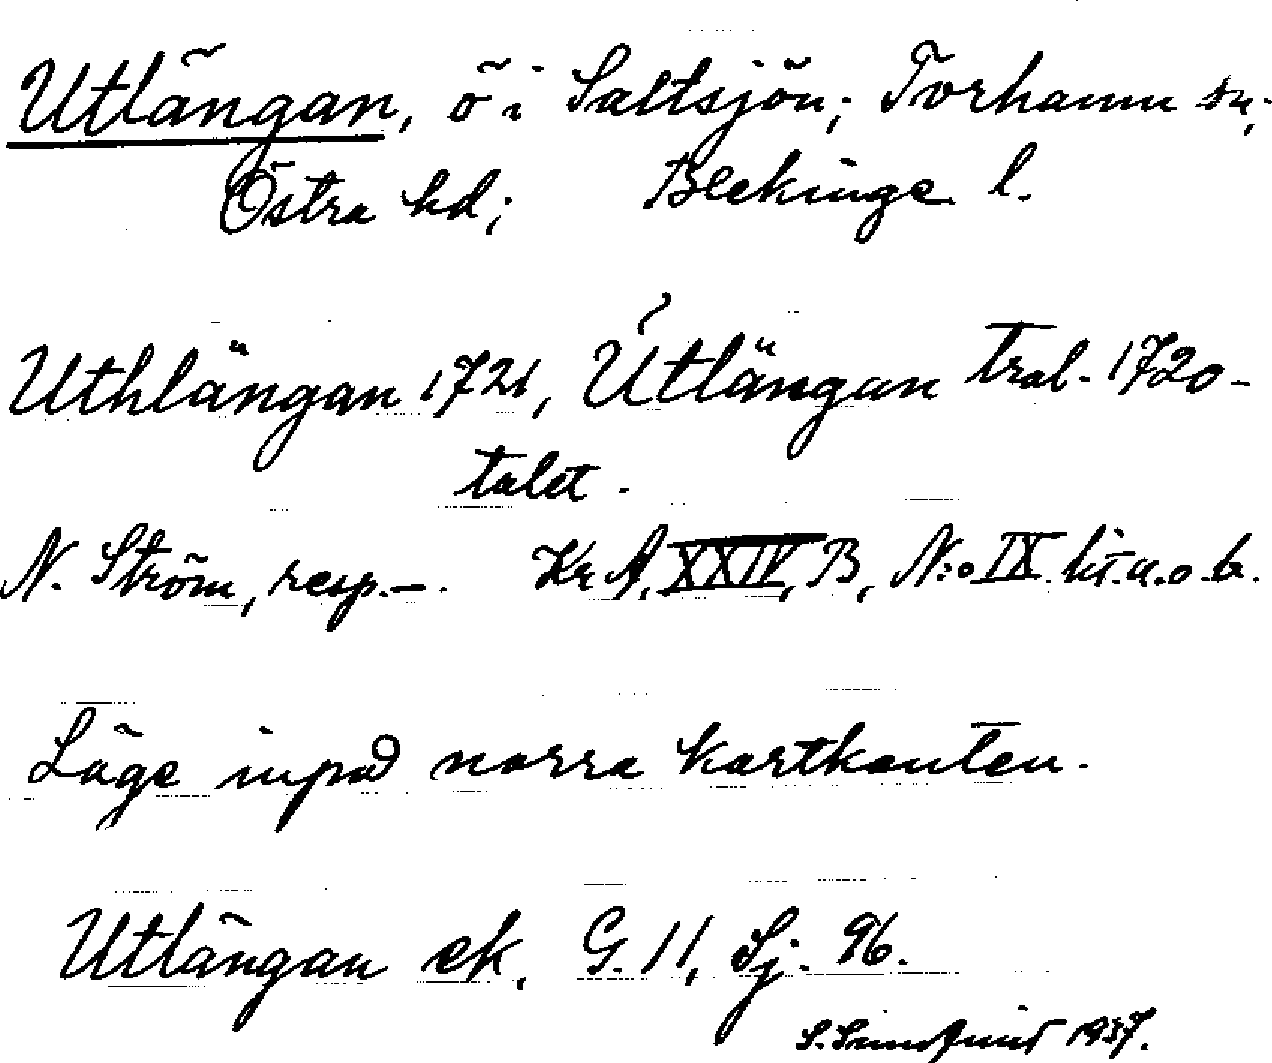 Utlängan, ö i Saltsjön; Torhamn sn;
Östra hd; Blekinge l.
Uthlängan 1721, Utlängan tral. 1720-
talet.
N. Ström, resp.-. Kr A, XXIV, B, N:o IX lit. a. o. b.
Läge inpå norra kartkanten.
Utlängan ek. G. 11, Sj. 96.
S. 1937.